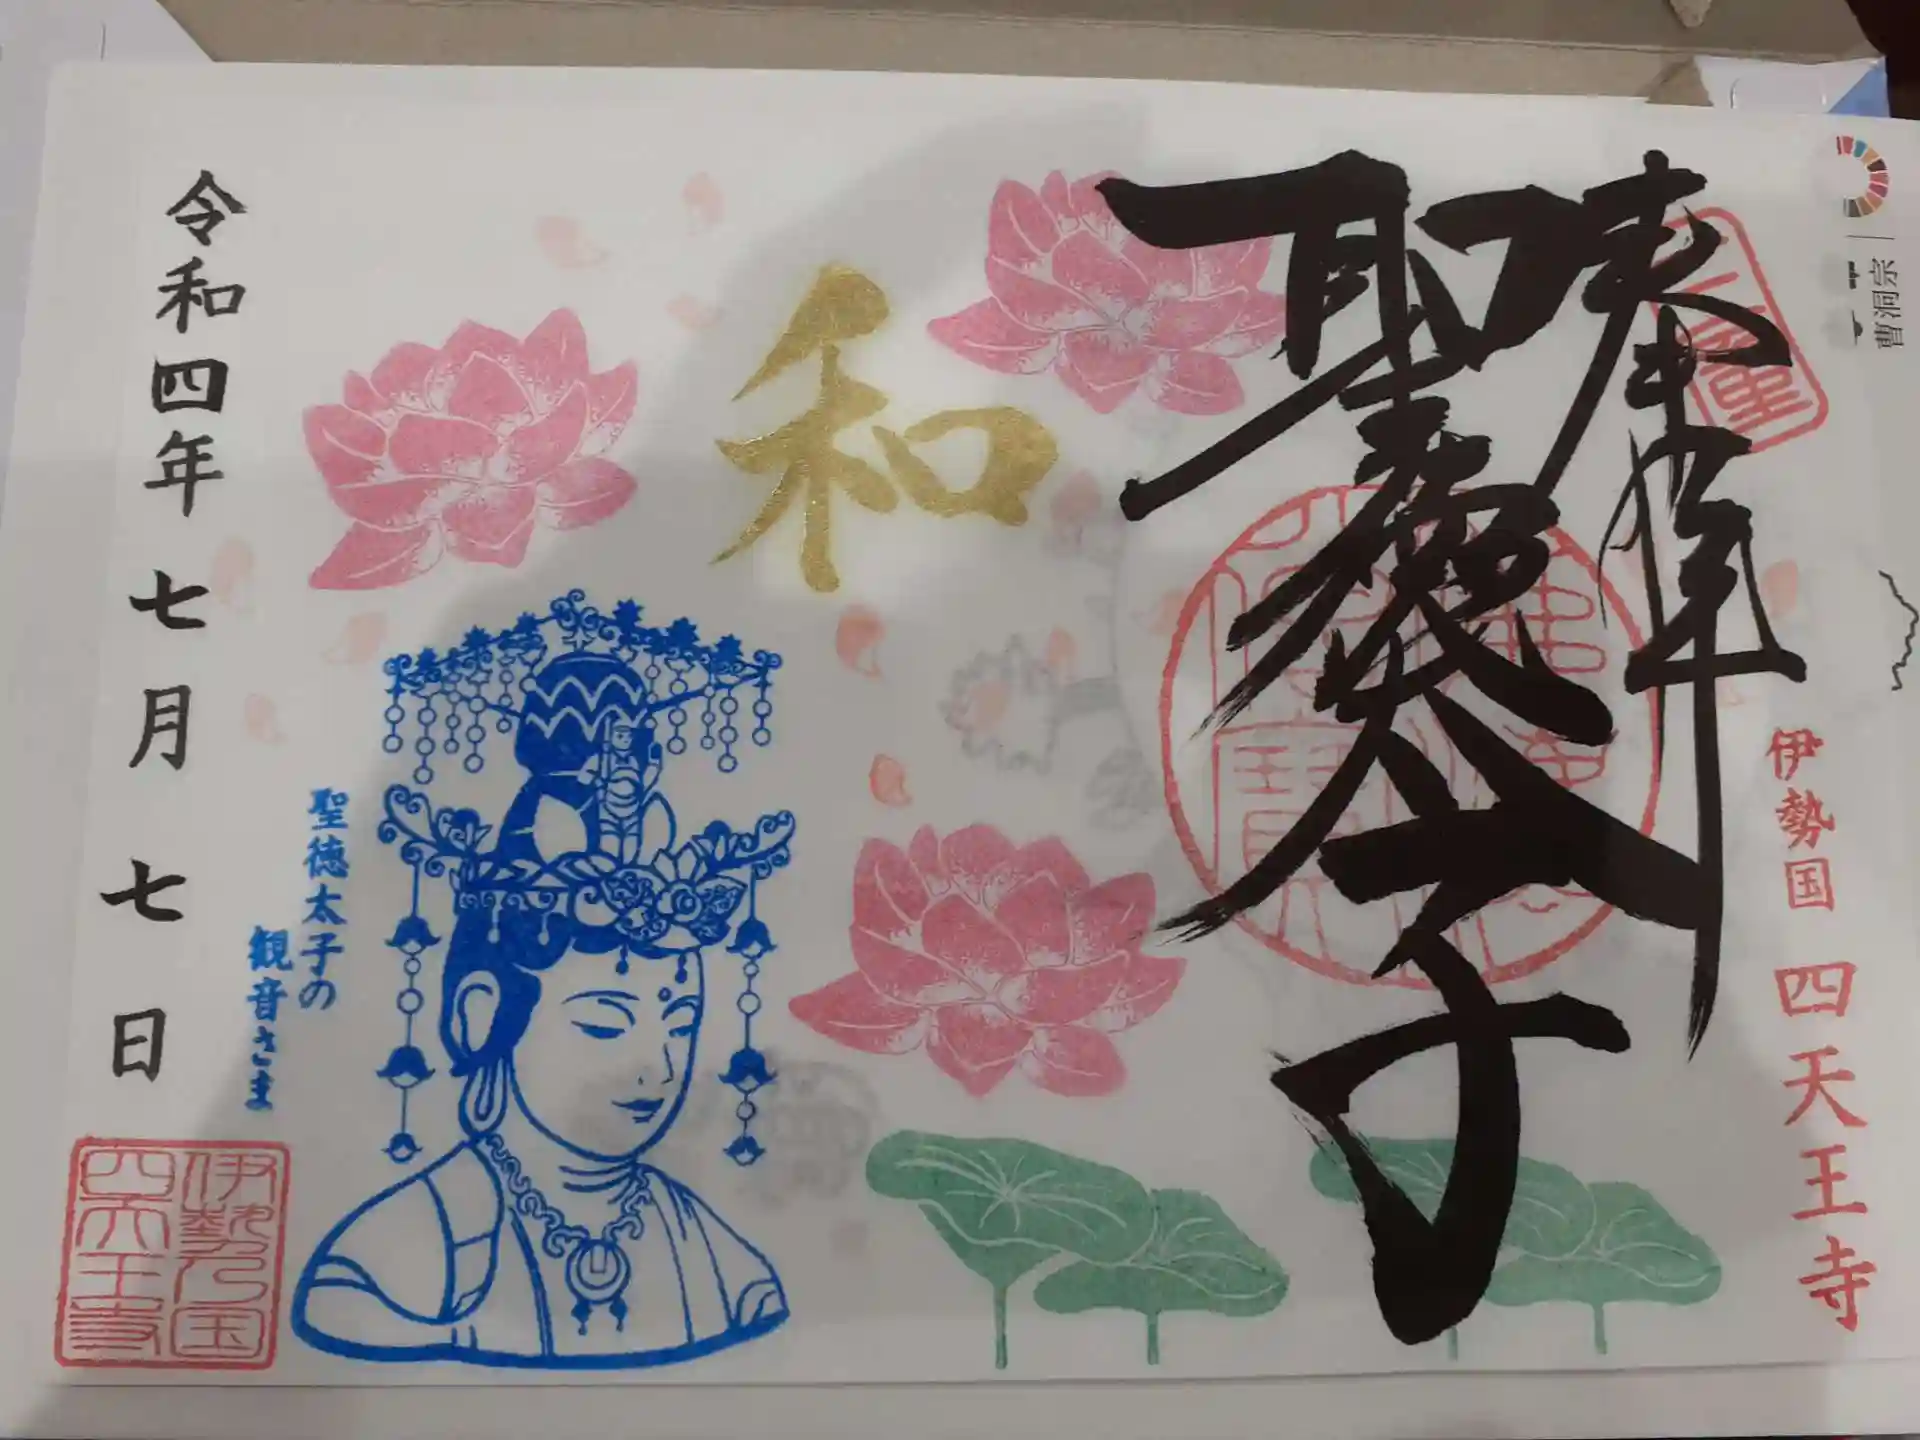 曹洞宗
奉拝
聖徳太子
伊勢国 四天王寺
和
聖徳太子の
観音さま
令和四年 七月 七日
伊勢乃国
四天王寺